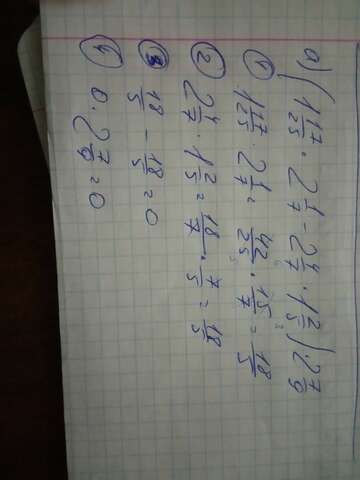 а) (1 17/25 · 2 1/7 - 2 4/7 · 1 2/5) · 2 7/9
① 1 17/25 · 2 1/7 = 42/25 · 15/7 = 18/5
② 2 4/7 · 1 2/5 = 18/7 · 7/5 = 18/5
③ 18/5 - 18/5 = 0
④ 0 · 2 7/9 = 0